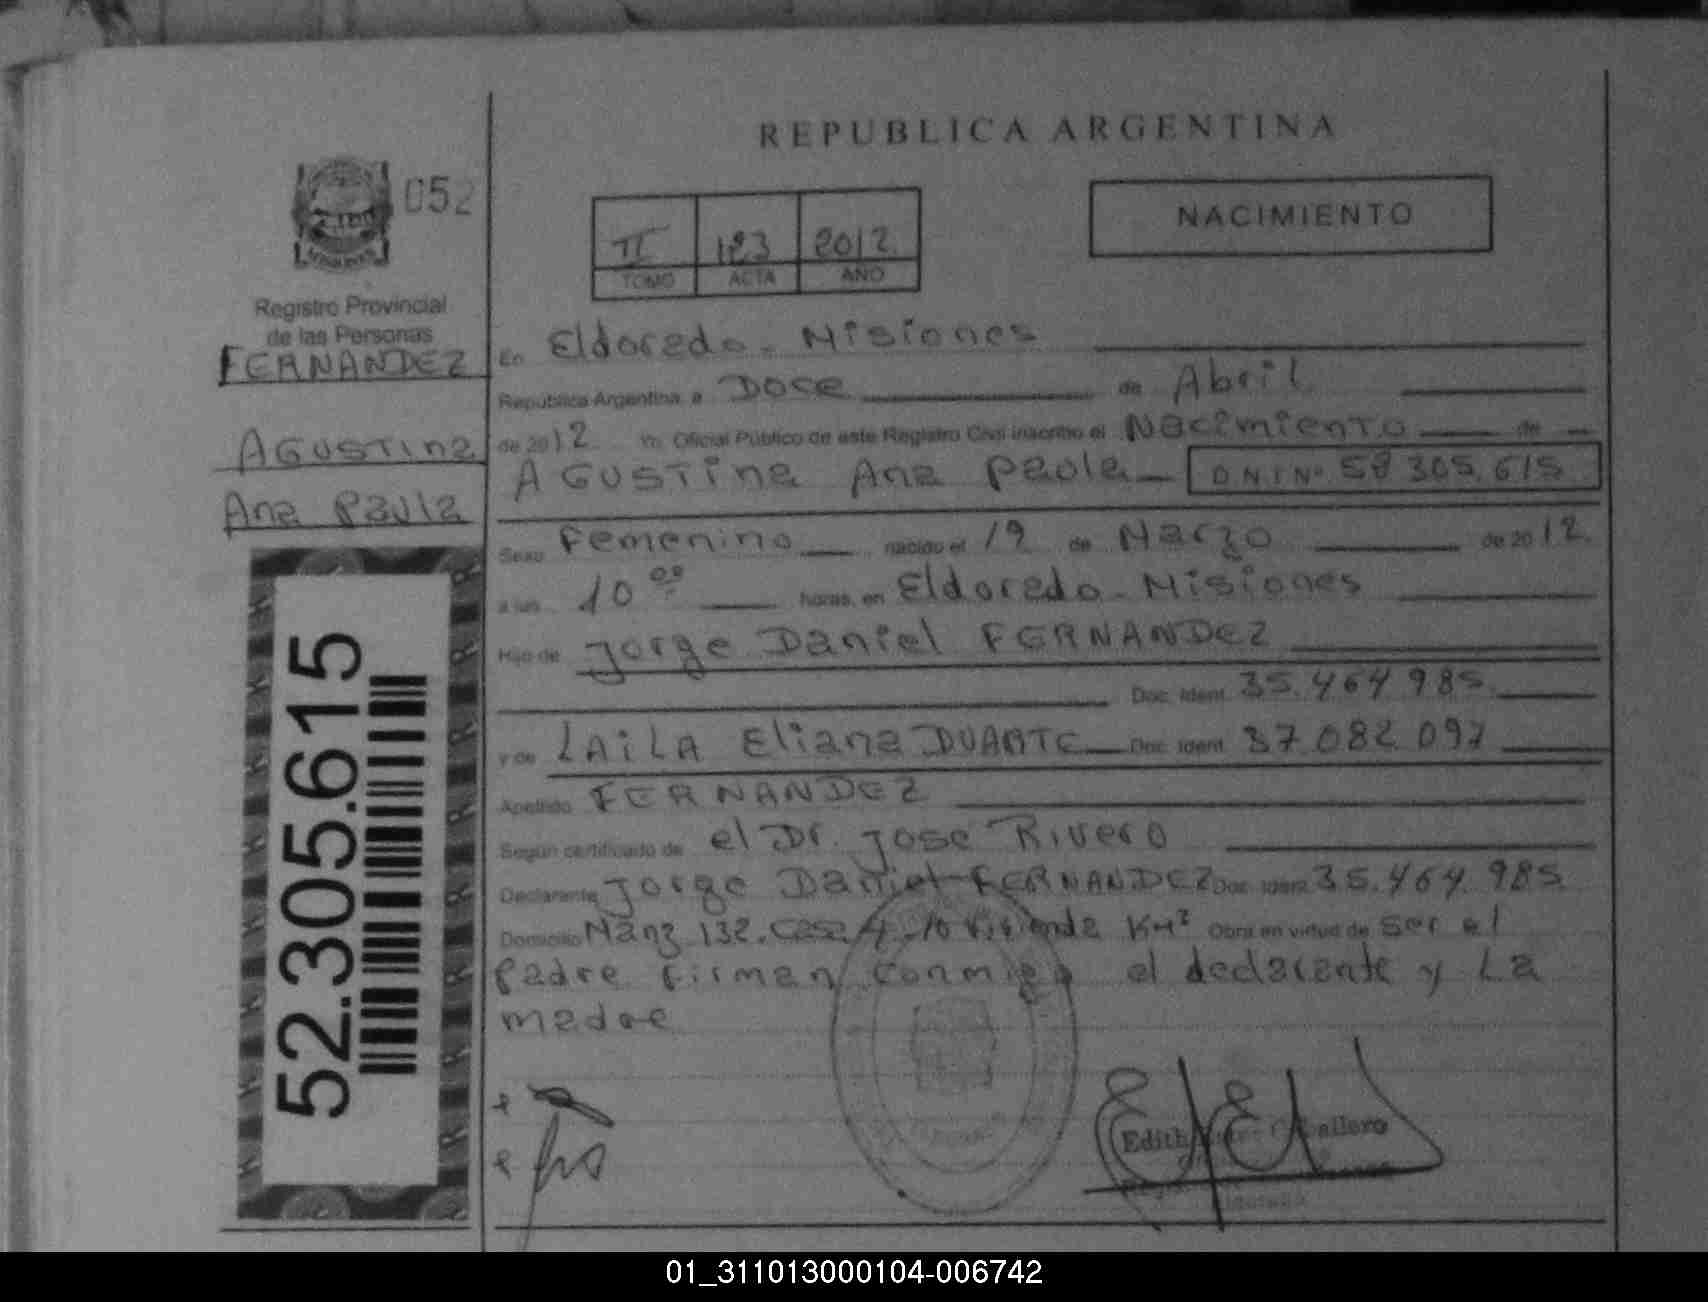 REPUBLICA ARGENTINA
052
NACIMIENTO
II 123 2012
TOMO ACTA AÑO
Registro Provincial
de las Personas
FERNANDEZ
AGUSTINA
Ana Paula
52.305.615
En Eldorado - Misiones
República Argentina a Doce de Abril
de 2012 Yo Oficial Público de este Registro Civil inscribo el Nacimiento de
AGUSTINA Ana Paula D N I Nº 52 305.615
Sexo Femenino nacido el 19 de Marzo de 2012
a las 10 00 horas, en Eldorado - Misiones
Hijo de Jorge Daniel FERNANDEZ
Doc. Ident. 35.464.985
y de LAILA Eliana DUARTE Doc. Ident. 37.082.097
Apellido FERNANDEZ
Según certificado de el Dr. Jose Rivero
Declarante Jorge Daniel FERNANDEZ Doc. Ident. 35.464.985
Domicilio Manz 132. Casa 4. 10 Vivienda KM² Obra en virtud de Ser el
Padre Firman conmigo el declarante y La
madre
Edith
01_311013000104-006742